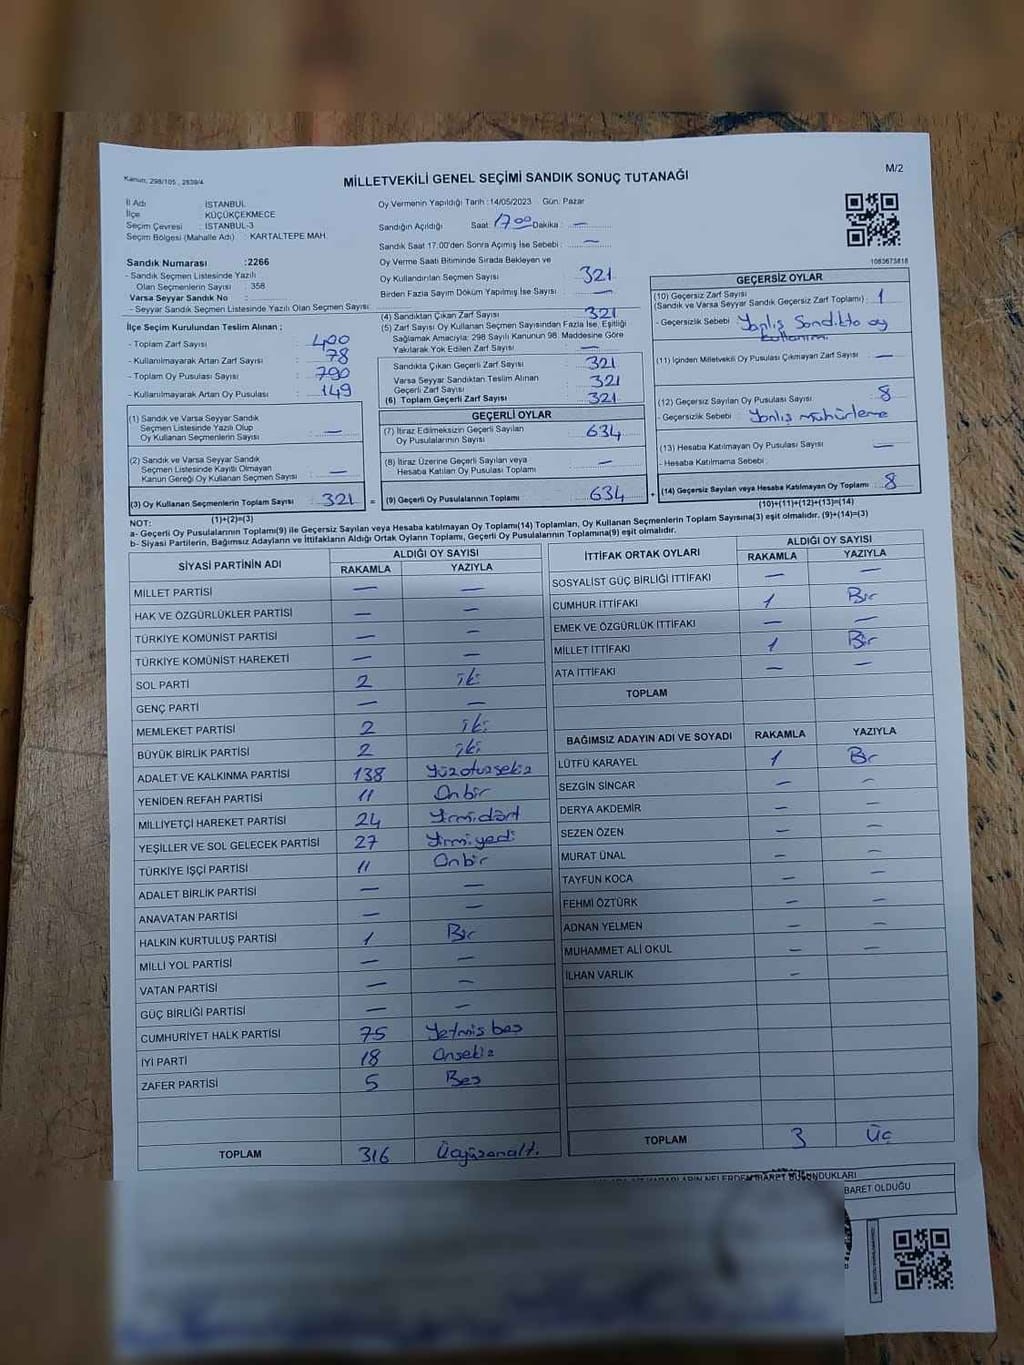 Kanun, 298/105 , 2839/4
M/2
MİLLETVEKİLİ GENEL SEÇİMİ SANDIK SONUÇ TUTANAĞI
İl Adı : İSTANBUL
İlçe : KÜÇÜKÇEKMECE
Seçim Çevresi : İSTANBUL-3
Seçim Bölgesi (Mahalle Adı) : KARTALTEPE MAH.
Sandık Numarası :2266
- Sandık Seçmen Listesinde Yazılı
Olan Seçmenlerin Sayısı : 358
Varsa Seyyar Sandık No :
- Seyyar Sandık Seçmen Listesinde Yazılı Olan Seçmen Sayısı:
İlçe Seçim Kurulundan Teslim Alınan ;
- Toplam Zarf Sayısı : 400
- Kullanılmayarak Artan Zarf Sayısı : 78
- Toplam Oy Pusulası Sayısı : 790
- Kullanılmayarak Artan Oy Pusulası : 149
(1) Sandık ve Varsa Seyyar Sandık
Seçmen Listesinde Yazılı Olup
Oy Kullanan Seçmenlerin Sayısı : —
(2) Sandık ve Varsa Seyyar Sandık
Seçmen Listesinde Kayıtlı Olmayan
Kanun Gereği Oy Kullanan Seçmen Sayısı : —
(3) Oy Kullanan Seçmenlerin Toplam Sayısı : 321
(1)+(2)=(3)
Oy Vermenin Yapıldığı Tarih :14/05/2023 Gün: Pazar
Sandığın Açıldığı Saat: 17.00 Dakika : —
Sandık Saat 17.00'den Sonra Açımış İse Sebebi : —
Oy Verme Saati Bitiminde Sırada Bekleyen ve
Oy Kullandırılan Seçmen Sayısı : 321
Birden Fazla Sayım Döküm Yapılmış İse Sayısı : —
(4) Sandıktan Çıkan Zarf Sayısı : 321
(5) Zarf Sayısı Oy Kullanan Seçmen Sayısından Fazla İse, Eşitliği
Sağlamak Amacıyla; 298 Sayılı Kanunun 98. Maddesine Göre
Yakılarak Yok Edilen Zarf Sayısı : —
Sandıkta Çıkan Geçerli Zarf Sayısı : 321
Varsa Seyyar Sandıktan Teslim Alınan
Geçerli Zarf Sayısı : 321
(6) Toplam Geçerli Zarf Sayısı : 321
GEÇERLİ OYLAR
(7) İtiraz Edilmeksizin Geçerli Sayılan
Oy Pusulalarının Sayısı : 634
(8) İtiraz Üzerine Geçerli Sayılan veya
Hesaba Katılan Oy Pusulası Toplamı : —
= (9) Geçerli Oy Pusulalarının Toplamı : 634
1083673818
GEÇERSİZ OYLAR
(10) Geçersiz Zarf Sayısı
(Sandık ve Varsa Seyyar Sandık Geçersiz Zarf Toplamı) : 1
- Geçersizlik Sebebi : Yanlış Sandıkta oy
kullanımı
(11) İçinden Milletvekili Oy Pusulası Çıkmayan Zarf Sayısı : —
(12) Geçersiz Sayılan Oy Pusulası Sayısı : 8
- Geçersizlik Sebebi : Yanlış mühürleme
(13) Hesaba Katılmayan Oy Pusulası Sayısı : —
- Hesaba Katılmama Sebebi :
+ (14) Geçersiz Sayılan veya Hesaba Katılmayan Oy Toplamı : 8
(10)+(11)+(12)+(13)=(14)
NOT:
a- Geçerli Oy Pusulalarının Toplamı(9) ile Geçersiz Sayılan veya Hesaba katılmayan Oy Toplamı(14) Toplamları, Oy Kullanan Seçmenlerin Toplam Sayısına(3) eşit olmalıdır. (9)+(14)=(3)
b- Siyasi Partilerin, Bağımsız Adayların ve İttifakların Aldığı Ortak Oyların Toplamı, Geçerli Oy Pusulalarının Toplamına(9) eşit olmalıdır.
SİYASİ PARTİNİN ADI ALDIĞI OY SAYISI
RAKAMLA YAZIYLA
MİLLET PARTİSİ — —
HAK VE ÖZGÜRLÜKLER PARTİSİ — —
TÜRKİYE KOMÜNİST PARTİSİ — —
TÜRKİYE KOMÜNİST HAREKETİ — —
SOL PARTİ 2 iki
GENÇ PARTİ — —
MEMLEKET PARTİSİ 2 iki
BÜYÜK BİRLİK PARTİSİ 2 iki
ADALET VE KALKINMA PARTİSİ 138 Yüzotuzsekiz
YENİDEN REFAH PARTİSİ 11 Onbir
MİLLİYETÇİ HAREKET PARTİSİ 24 Yirmidört
YEŞİLLER VE SOL GELECEK PARTİSİ 27 Yirmiyedi
TÜRKİYE İŞÇİ PARTİSİ 11 Onbir
ADALET BİRLİK PARTİSİ — —
ANAVATAN PARTİSİ — —
HALKIN KURTULUŞ PARTİSİ 1 Bir
MİLLİ YOL PARTİSİ — —
VATAN PARTİSİ — —
GÜÇ BİRLİĞİ PARTİSİ — —
CUMHURİYET HALK PARTİSİ 75 Yetmiş beş
İYİ PARTİ 18 Onsekiz
ZAFER PARTİSİ 5 Beş
TOPLAM 316 Üçyüzonaltı
İTTİFAK ORTAK OYLARI ALDIĞI OY SAYISI
RAKAMLA YAZIYLA
SOSYALİST GÜÇ BİRLİĞİ İTTİFAKI — —
CUMHUR İTTİFAKI 1 Bir
EMEK VE ÖZGÜRLÜK İTTİFAKI — —
MİLLET İTTİFAKI 1 Bir
ATA İTTİFAKI — —
TOPLAM
BAĞIMSIZ ADAYIN ADI VE SOYADI RAKAMLA YAZIYLA
LÜTFÜ KARAYEL 1 Bir
SEZGİN SİNCAR — —
DERYA AKDEMİR — —
SEZEN ÖZEN — —
MURAT ÜNAL — —
TAYFUN KOCA — —
FEHMİ ÖZTÜRK — —
ADNAN YELMEN — —
MUHAMMET ALİ OKUL — —
İLHAN VARLIK —
TOPLAM 3 Üç
BARET OLDUĞU